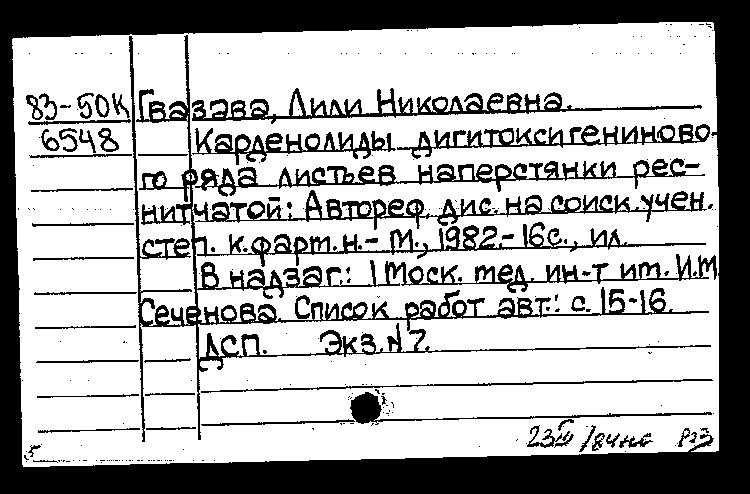 83-50К Гвазава, Лили Николаевна.
6548 Карденолиды дигитоксигениново-
го ряда листьев наперстянки рес-
нитчатой: Автореф. дис. на соиск. учен.
степ. к.фарм.н.- М., 1982.-16с., ил.
В надзаг.: 1 Моск. мед. ин-т им. И.М.
Сеченова. Список работ авт.: с. 15-16.
ДСП. Экз.N7.
5 23III